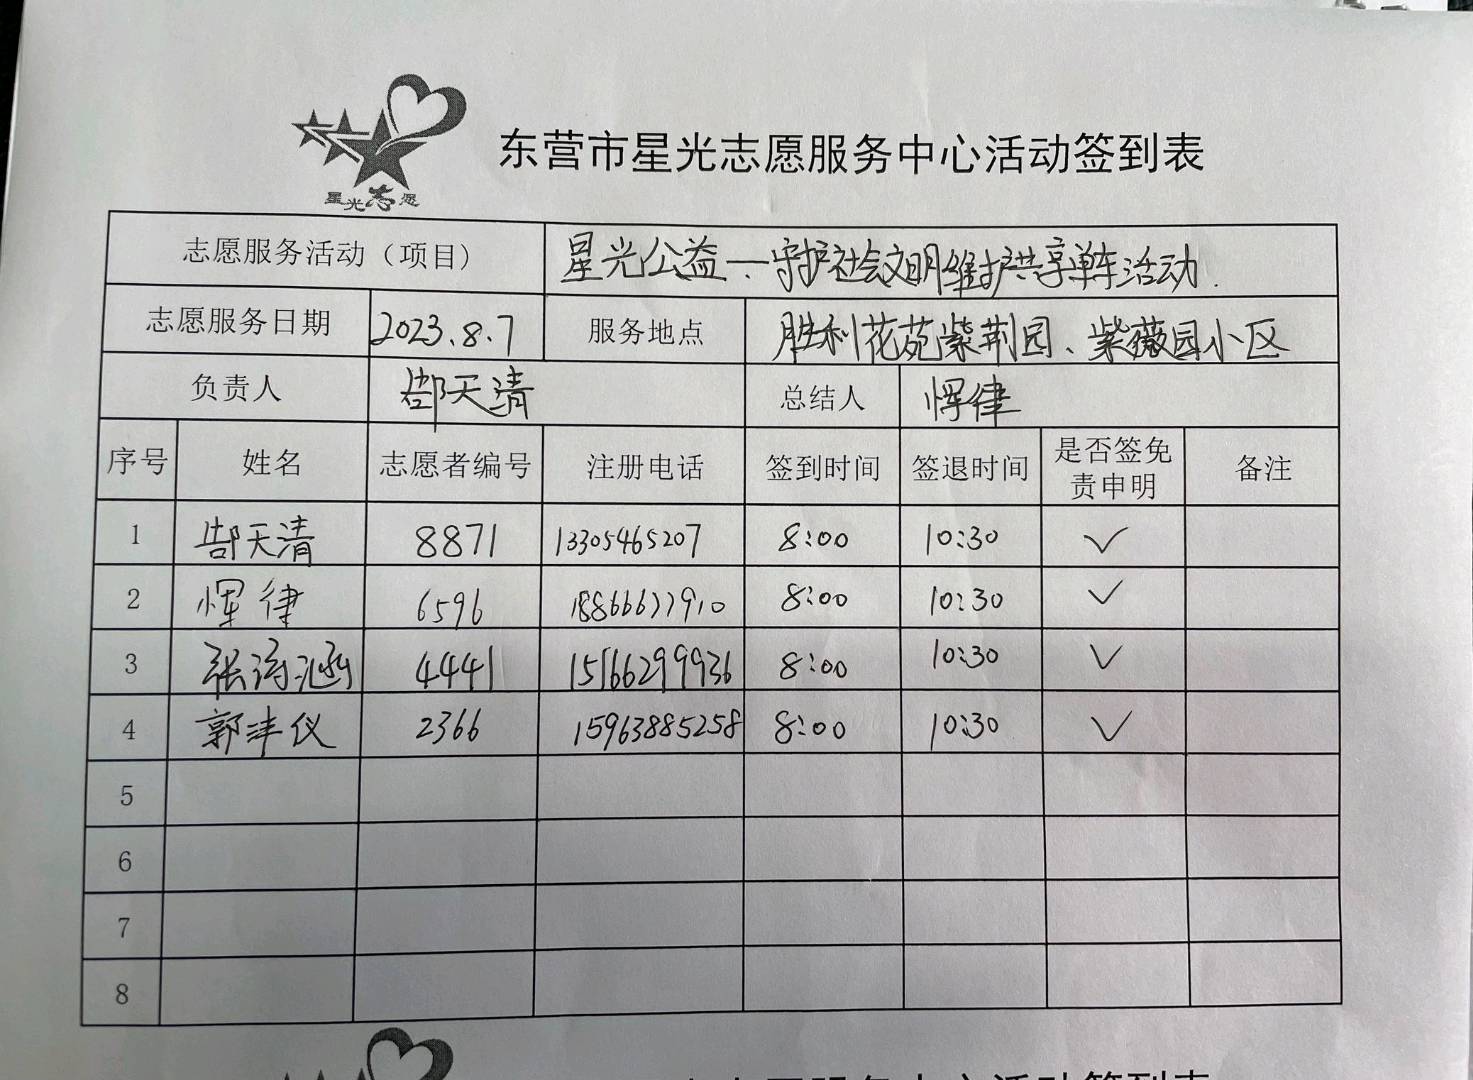 东营市星光志愿服务中心活动签到表
星光志愿
志愿服务活动（项目） 星光公益一守护社会文明维护共享单车活动.
志愿服务日期 2023.8.7 服务地点 胜利花苑紫荆园、紫薇园小区
负责人 郜天清 总结人 恽律
序号 姓名 志愿者编号 注册电话 签到时间 签退时间 是否签免责申明 备注
1 郜天清 8871 13305465207 8:00 10:30 ✓
2 恽律 6596 18866677910 8:00 10:30 ✓
3 张涵 4441 15166299936 8:00 10:30 ✓
4 郭沣仪 2366 15963885258 8:00 10:30 ✓
5
6
7
8